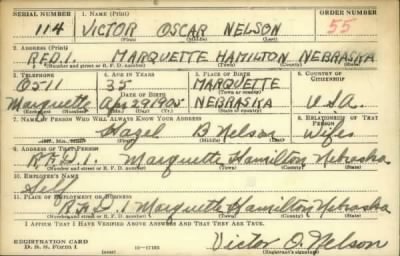 SERIAL NUMBER 1. NAME (Print) ORDER NUMBER
114 VICTOR OSCAR NELSON 55
(First) (Middle) (Last)
2. ADDRESS (Print)
R.F.D.1. MARQUETTE HAMILTON NEBRASKA
(Number and street or R. F. D. number) (Town) (County) (State)
3. TELEPHONE 4. AGE IN YEARS 5. PLACE OF BIRTH 6. COUNTRY OF CITIZENSHIP
0511 35 MARQUETTE
DATE OF BIRTH (Town or county)
Marquette Apr 29 1905 NEBRASKA U.S.A.
(Exchange) (Number) (Mo.) (Day) (Yr.) (State or country)
7. NAME OF PERSON WHO WILL ALWAYS KNOW YOUR ADDRESS 8. RELATIONSHIP OF THAT PERSON
Hazel B Nelson Wife
(Mr., Mrs., Miss) (First) (Middle) (Last)
9. ADDRESS OF THAT PERSON
R.F.D.1. Marquette Hamilton Nebraska
(Number and street or R. F. D. number) (Town) (County) (State)
10. EMPLOYER'S NAME
Self
11. PLACE OF EMPLOYMENT OR BUSINESS
R.F.D. 1 Marquette Hamilton Nebraska
(Number and street or R. F. D. number) (Town) (County) (State)
I AFFIRM THAT I HAVE VERIFIED ABOVE ANSWERS AND THAT THEY ARE TRUE.
REGISTRATION CARD
D. S. S. Form 1 16—17105 Victor O. Nelson
(Registrant's signature)